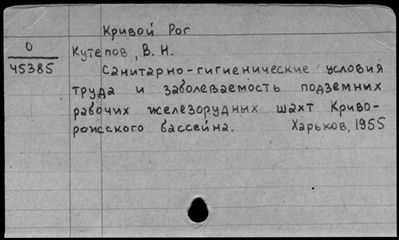 Кривой Рог
0
45385
Кутепов, В. Н.
Санитарно-гигиенические условия
труда и заболеваемость подземных
рабочих железорудных шахт Криво-
рожского бассейна. Харьков, 1955